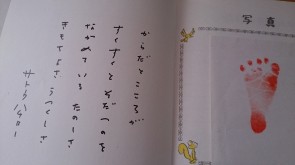 からだとこころが
すくすくとそだつのを
ながめている たのしさ
きもちよさ うつくしさ
サトウハチロー
写真